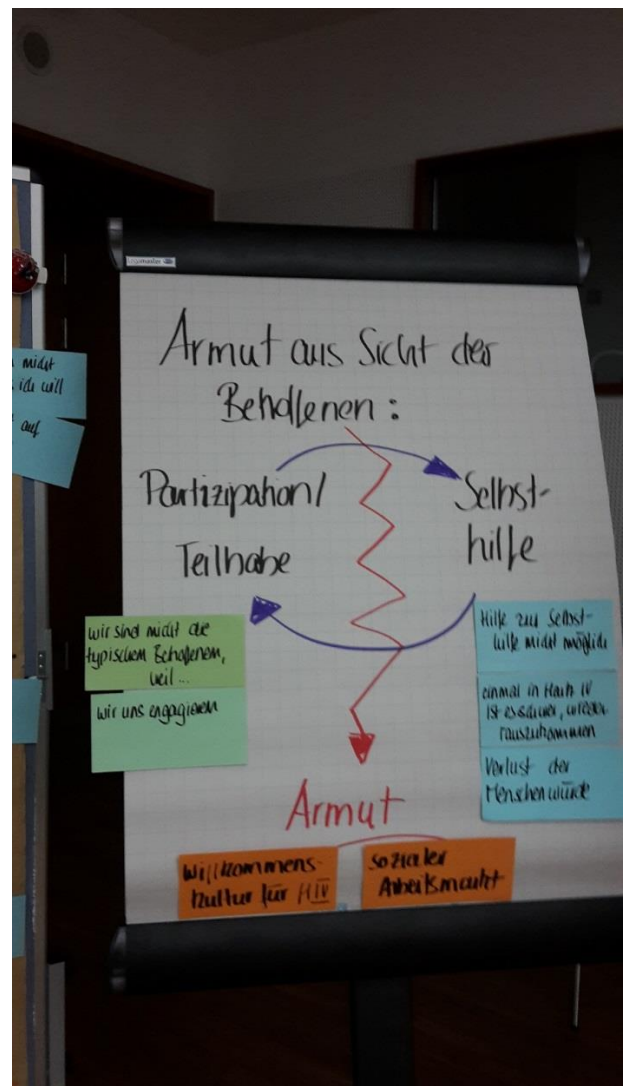 midt
ich will
auf
Armut aus Sicht der
Betroffenen :
Partizipation/
Teilhabe
Selbst-
hilfe
wir sind nicht die
typischen Betroffenen,
weil ...
wir uns engagieren
Hilfe zur Selbst-
hilfe nicht möglich
einmal in Hartz IV
ist es schwer, wieder
rauszukommen
Verlust der
Menschenwürde
Armut
Willkommens-
kultur für HIV
Sozialer
Arbeitsmarkt